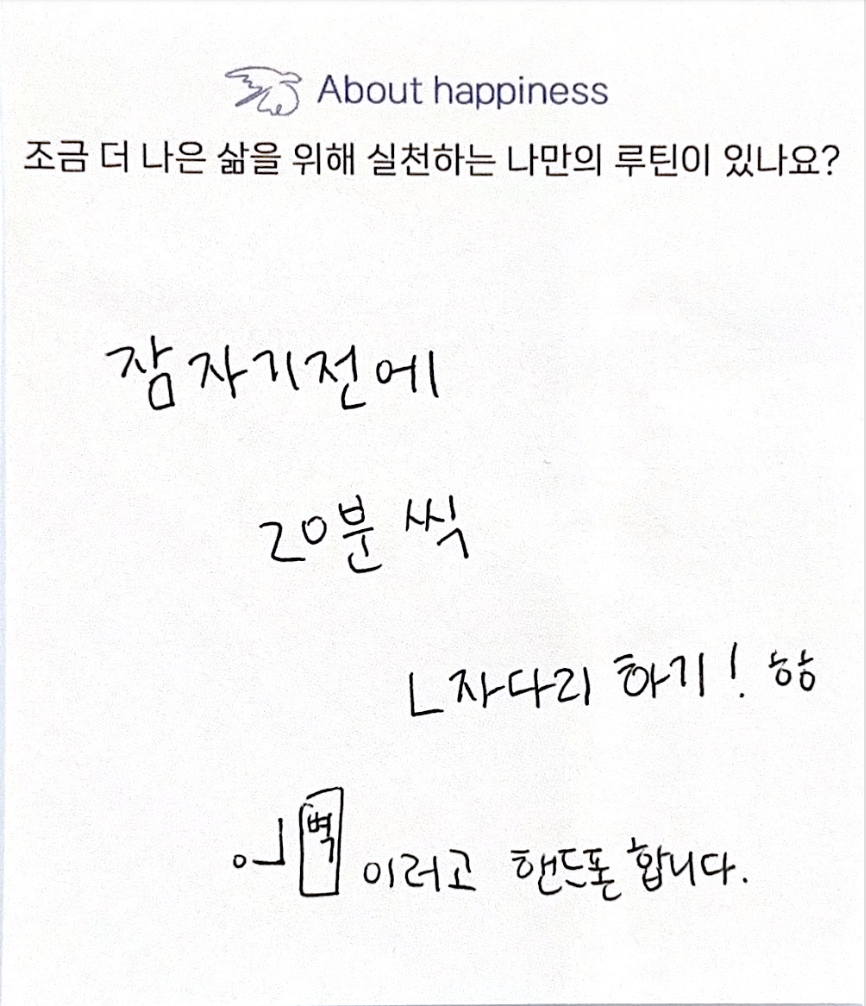 About happiness
조금 더 나은 삶을 위해 실천하는 나만의 루틴이 있나요?
잠자기전에
20분 씩
L자다리 하기! ㅎㅎ
벽 이러고 핸드폰 합니다.